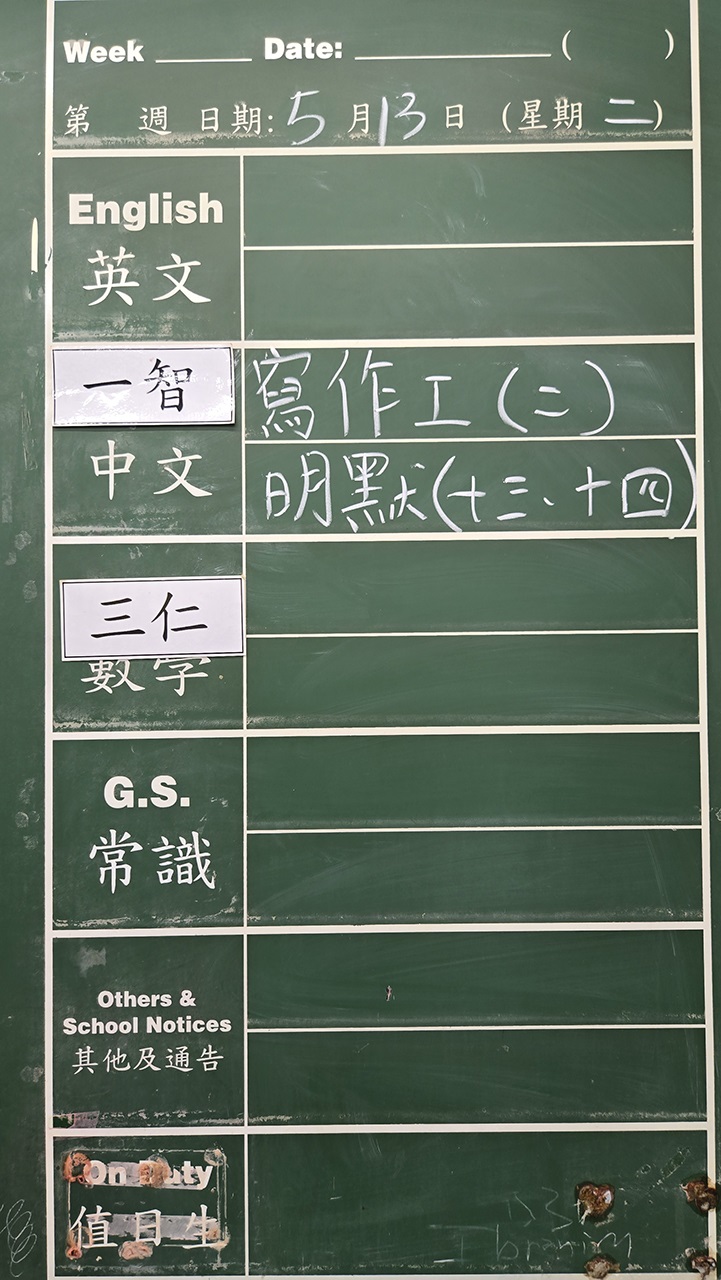 Week ____ Date: ________ ( )
第 週 日期: 5 月 13 日 (星期 二)
English
英文
一智
寫作工(二)
中文
明默(十三、十四)
三仁
數學
G.S.
常識
Others &
School Notices
其他及通告
On Duty
值日生